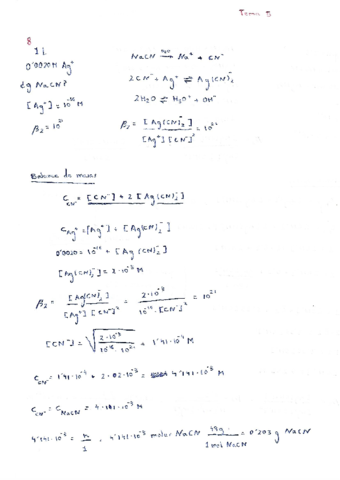 Tema 5
8
1 L
0'0020 M Ag⁺
¿g NaCN?
[Ag⁺] = 10⁻¹⁶ M
β₂ = 10²¹
NaCN —H₂O→ Na⁺ + CN⁻
2CN⁻ + Ag⁺ ⇌ Ag(CN)₂⁻
2H₂O ⇌ H₃O⁺ + OH⁻
β₂ = [Ag(CN)₂⁻] / [Ag⁺][CN⁻]² = 10²¹
Balance de masas
C_CN⁻ = [CN⁻] + 2[Ag(CN)₂⁻]
C_Ag⁺ = [Ag⁺] + [Ag(CN)₂⁻]
0'0020 = 10⁻¹⁶ + [Ag(CN)₂⁻]
[Ag(CN)₂⁻] = 2·10⁻³ M
β₂ = [Ag(CN)₂⁻] / [Ag⁺][CN⁻]² = 2·10⁻³ / 10⁻¹⁶·[CN⁻]² = 10²¹
[CN⁻] = √(2·10⁻³ / 10⁻¹⁶·10²¹) = 1'41·10⁻⁴ M
C_CN⁻ = 1'41·10⁻⁴ + 2·02·10⁻³ = 4'141·10⁻³ M
C_CN⁻ = C_NaCN = 4'141·10⁻³ M
4'141·10⁻³ = n/1, 4'141·10⁻³ moles NaCN 49g/1 mol NaCN = 0'203 g NaCN